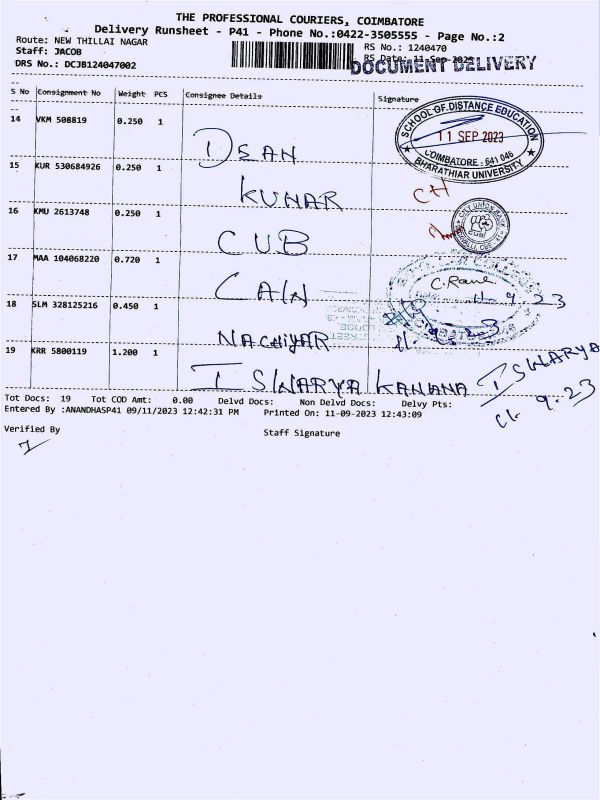 THE PROFESSIONAL COURIERS, COIMBATORE
Delivery Runsheet - P41 - Phone No.:0422-3505555 - Page No.:2
Route: NEW THILLAI NAGAR
RS No.: 1240470
Staff: JACOB
RS Date: 11-Sep-2023
DRS No.: DCJB124047002
DOCUMENT DELIVERY
S No Consignment No Weight PCS Consignee Details Signature
14 VKM 508819 0.250 1
SCHOOL OF DISTANCE EDUCATION
11 SEP 2023
COIMBATORE - 641 046
BHARATHIAR UNIVERSITY
15 KUR 530684926 0.250 1
KUNAR
16 KMU 2613748 0.250 1
CUB
17 MAA 104068220 0.720 1
CAIN
11.9.23
18 SLM 328125216 0.450 1
NACHIYAR
11.9.23
19 KRR 5800119 1.200 1
ISWARYA KANANA
ISWARYA
11.9.23
Tot Docs: 19 Tot COD Amt: 0.00 Delvd Docs: Non Delvd Docs: Delvy Pts:
Entered By :ANANDHASP41 09/11/2023 12:42:31 PM Printed On: 11-09-2023 12:43:09
Verified By
Staff Signature